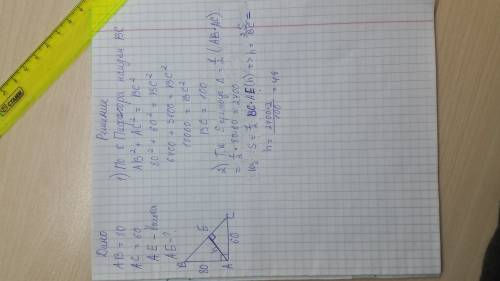 Дано
AB = 80
AC = 60
AE - высота
AE - ?
B
E
C
A
80
60
h
Решение
1) По т Пифагора найдем BC
AB² + AC² = BC²
80² + 60² = BC²
6400 + 3600 = BC²
10000 = BC²
BC = 100
2) Т.к. S прямоуг Δ = 1/2 (AB·AC)
= 1/2 · 80·60 = 2400
S = 1/2 BC·AE(h) => h = 2S/BC =
h = 2400·2/100 = 48
СТАММ